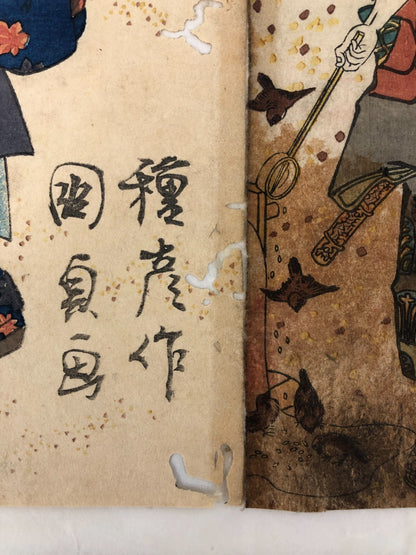 種彦作
国貞画